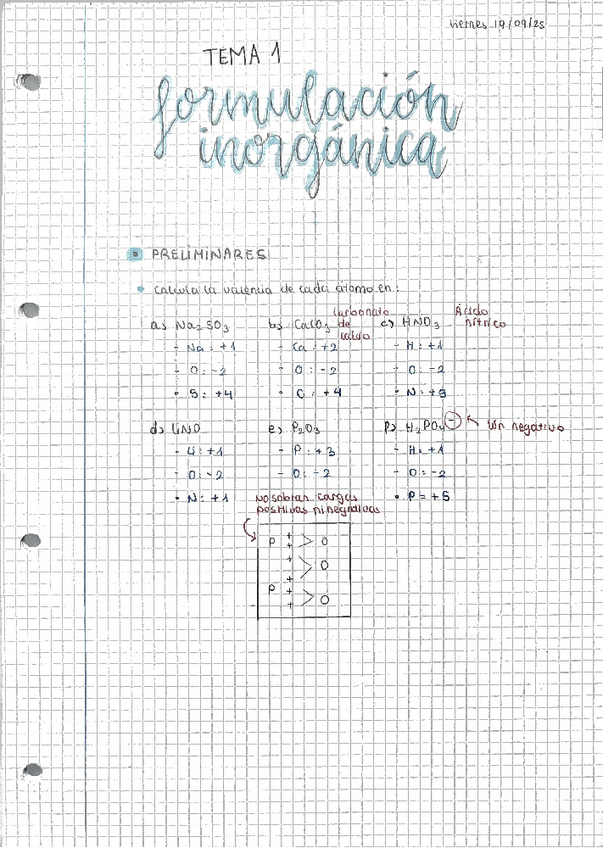 viernes 19/09/25
TEMA 1
formulación
inorgánica
PRELIMINARES
calcula la valencia de cada átomo en:
a) Na₂SO₃
- Na: +1
- O: -2
• S: +4
b) CaCO₃ Carbonato de calcio
- Ca: +2
- O: -2
• C: +4
c) HNO₃ Ácido nítrico
- H: +1
- O: -2
• N: +5
d) LiNO
- Li: +1
- O: -2
• N: +1
e) P₂O₃
- P: +3
- O: -2
No sobran cargas
positivas ni negativas
P + + > O
+ + > O
P + + > O
f) H₂PO₄⁻ ion negativo
- H: +1
- O: -2
• P = +5